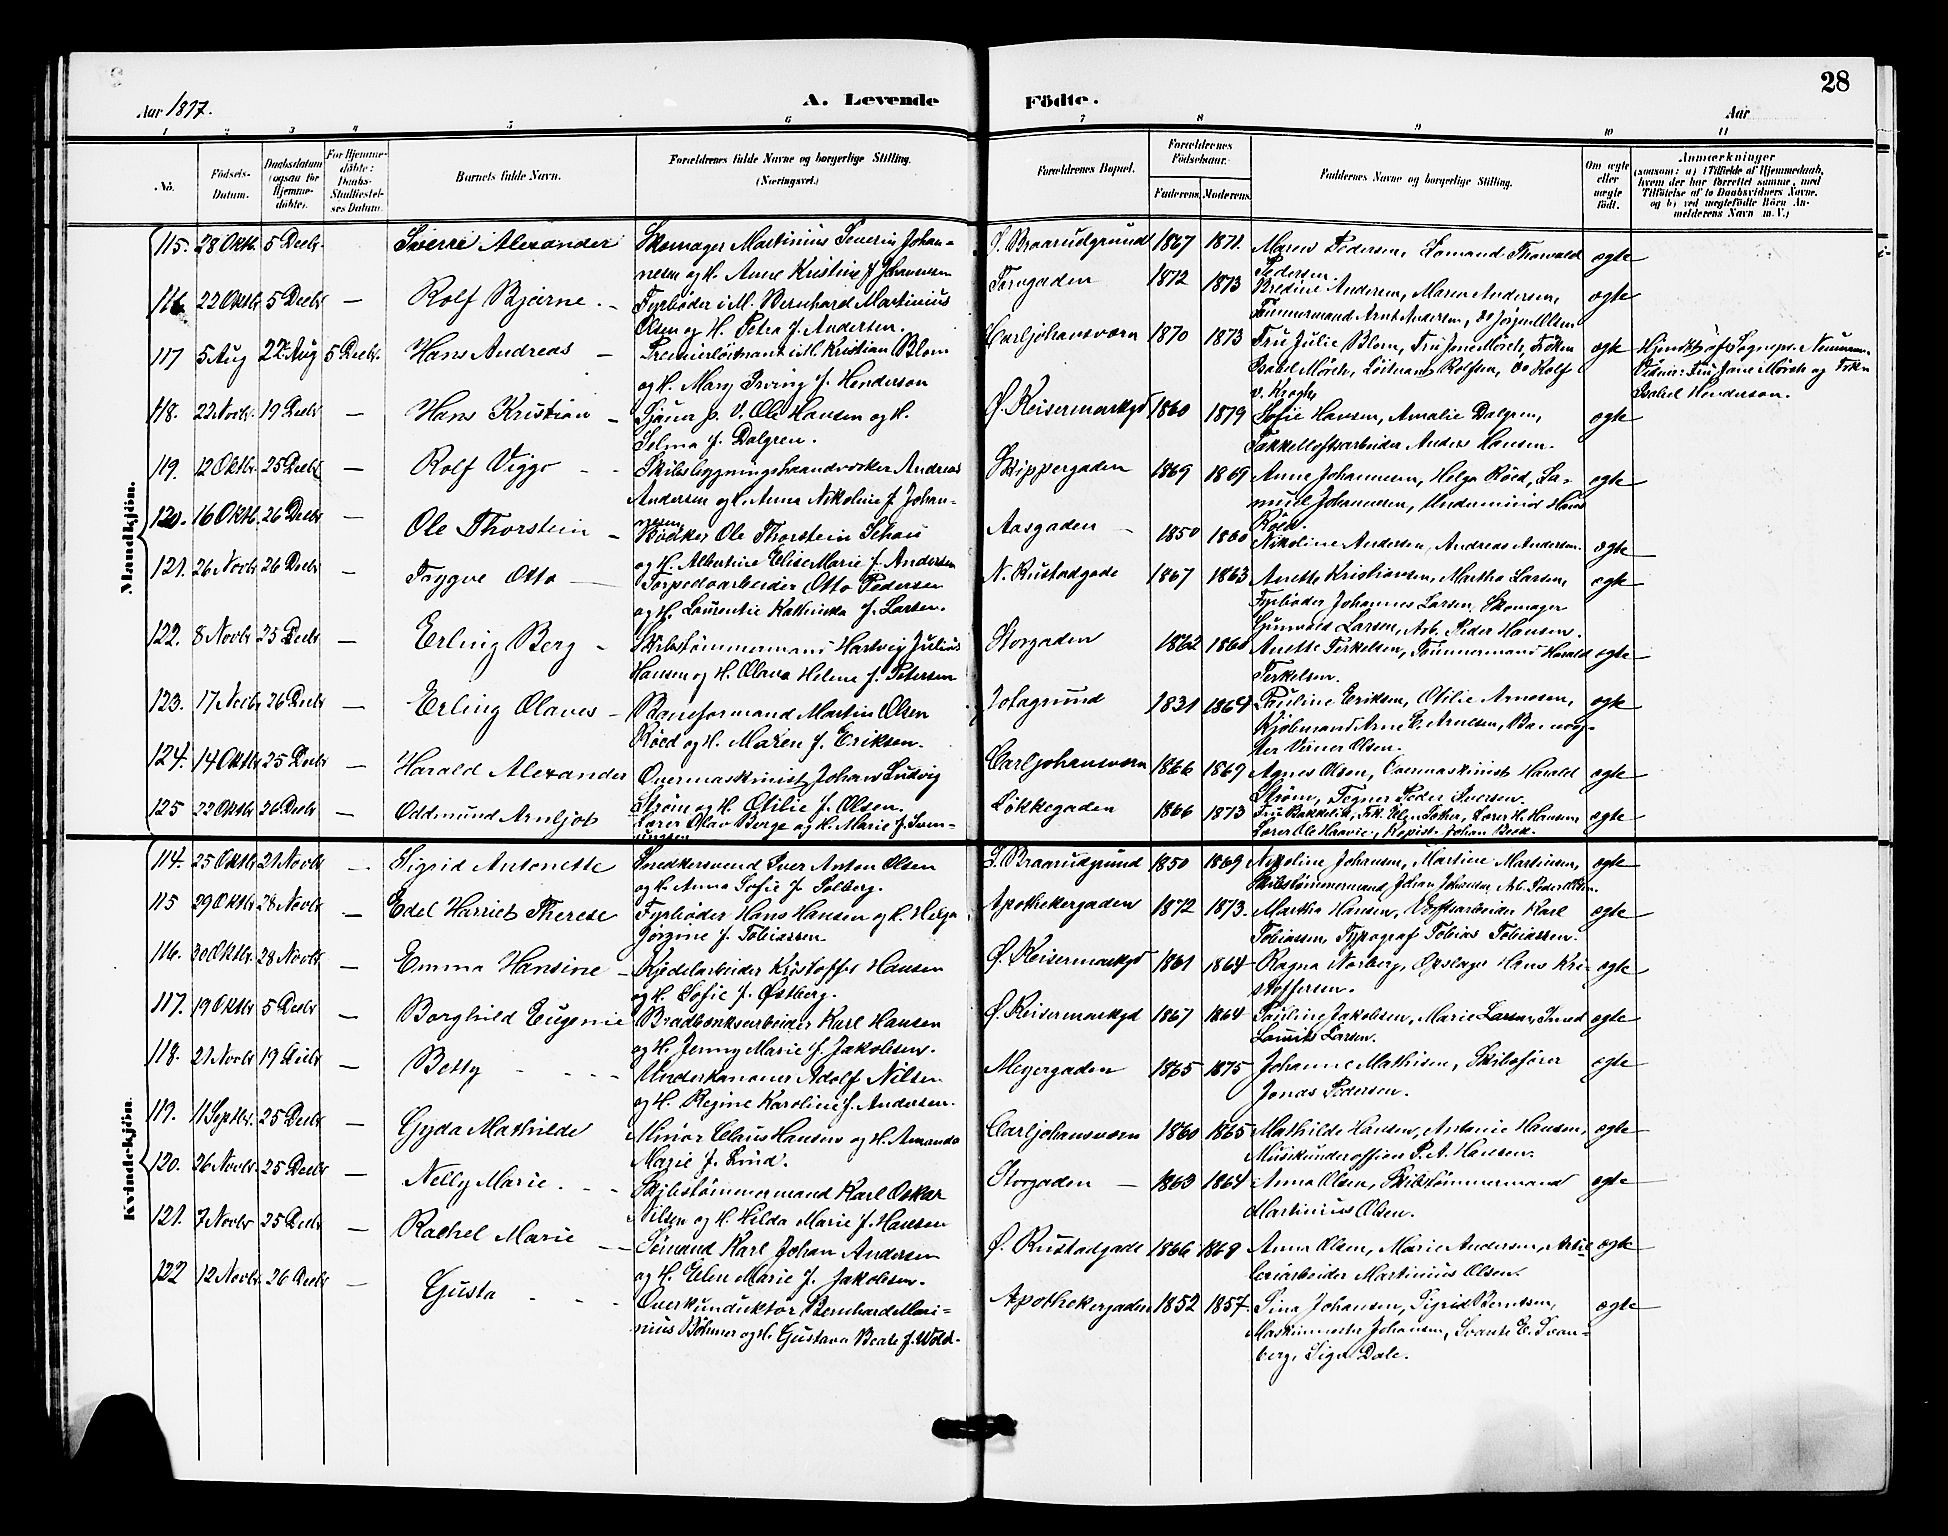 28
Aar 1897.
A. Levende
Födte.
Aar
1 2 3 4 5 6 7 8 9 10 11
No.
Födsels-Datum.
Daabsdatum (ogsaa for Hjemme-döbte).
For Hjemme-döbte: Daabs-Stadfæstel-ses Datum.
Barnets fulde Navn.
Forældrenes fulde Navne og borgerlige Stilling. (Næringsvei.)
Forældrenes Bopæl.
Forældrenes Födselsaar.
Faderens. Moderens.
Faddernes Navne og borgerlige Stilling.
Om ægte eller uægte født.
Anmærkninger
(saasom: a) i Tilfælde af Hjemmedaab, hvem der har forrettet samme, med Tilföielse af to Daabsvidners Navne. og b) ved uægtefödte Börn An-melderens Navn m. V.)
Mandkjön.
115. 28 Oktb. 5 Decbr Sverre Alexander Skomager Martinius Severin Johan-
nesen og H. Anne Kristine f. Johannesen
Ø. Braarudgrund 1867 1871. Maren Pedersen, Sømand Thorvald
Pedersen. ægte
116 22 Oktbr 5 Decbr — Rolf Bjarne — Fyrbøder i M. Bernhard Martinius
Olsen og H. Petra f. Andersen.
Torvgaden 1872 1873 Bredine Andersen, Maren Andersen,
Tømmermand Arnt Andersen, do Jörgen Olsen ægte
117 5 Aug 22 Aug 5 Decbr. Hans Andreas — Premierløitnant i M. Kristian Blom
og H. Mary Irving f. Henderson
Carljohansværn 1870 1873 Fru Julie Blom, Fru Jane Mørch, Frøken
Isabel Mörch, Löitnant Rolfsen, do Rolf
v. Krogh ægte
Hjemdöbt af Sognepr. Neumann
Vidner: Fru Jane Mörch og Frkn
Isabel Henderson.
118. 22 Novbr. 19 Decbr — Hans Kristian — Gjaur p. V. Ole Hansen og H.
Selma f. Dalgren.
Ø. Keisermarkgd 1860 1879 Sofie Hansen, Amalie Dalgren,
Takkelloftsarbeider Anders Hansen. ægte
119. 12 Oktbr. 25 Decbr — Rolf Viggo - - Skibsbygningshaandværker Andreas
Andersen og H. Anna Nikoline f. Johan-
nesen
Skippergaden 1869 1869 Anne Johannesen, Helga Röed, Sa-
muel Johannesen, Underminör Hans
Röed. ægte
120. 16 Oktb. 26 Decbr — Ole Thorstein — Bödker Ole Thorstein Schau
og H. Albertine Elise Marie f. Andersen
Aasgaden — 1850 1860 Nikoline Andersen, Andreas Andersen. ægte
121. 26 Novbr 26 Decbr — Tryggve Otto — Torpedoarbeider Otto Pedersen
og H. Laurentie Kathinka f. Larsen.
N. Rustadgade 1867 1863 Anette Kristiansen, Martha Larsen,
Fyrbøder Johannes Larsen, Skomager
Gunvald Larsen, Arb. Peder Hansen. ægte
122. 8 Novbr 25 Decbr — Erling Berg - Skibstømmermand Hartvig Julius
Hansen og H. Olava Helene f. Petersen
Storgaden 1862 1860 Anette Terkelsen, Tømmermand Harald
Terkelsen. ægte
123. 17 Novbr 26 Decbr — Erling Olaves — Baneformand Martin Olsen
Röed og H. Maren f. Eriksen.
1831 1864 Pauline Eriksen, Otilie Arnesen,
Kjöbmand Arne E. Arnesen, Banevog-
ter Olsen. ægte
124. 14 Oktbr 25 Decbr — Harald Alexander Overmaskinist Johan Ludvig
Strøm og H. Otilie f. Olsen.
Carljohansværn 1866 1869 Agnes Olsen, Overmaskinist Harald
Strøm, Tegner Peder Iversen. ægte
125 22 Oktbr 26 Decbr — Oddmund Arnljot Lærer Olav Berge og H. Marie f. Svem-
ungsen
Løkkegaden 1866 1873 Fru Bakkelid, Frk. Elen Lærer H. Hansen,
Lærer Ole Haavie, Kopist Johan Beck. ægte
Kvindekjön.
114. 25 Oktbr 21 Novbr — Sigrid Antonette Snedkersvend Iver Anton Olsen
og H. Anna Sofie f. Solberg.
L. Braarudgrund 1850 1869 Nikoline Johansen, Martine Martinsen,
Skibstømmermand Johan Johansen, Arb. Peder Olsen. ægte
115 29 Oktbr 28 Novbr — Edel Harriet Therese Fyrbøder Hans Hansen og H. Helga
Jörgine f. Tobiassen
Apothekergaden 1872 1873. Martha Hansen, Værftsarbeider Karl
Tobiassen, Typograf Tobias Tobiassen. ægte
116. 30 Oktbr. 28 Novbr. — Emma Hansine — Kjedelarbeider Kristoffer Hansen
og H. Sofie f. Østberg.
Ø. Keisermarkgd 1861 1864 Ragna Norberg, Opslager Hans Kri-
stoffersen. ægte
117. 19 Oktbr 5 Decbr — Borghild Eugenie Bradbænksarbeider Karl Hansen
og H. Jenny Marie f. Jakobsen.
Ø. Keisermarkgd 1867 1864 Pauline Jakobsen, Marie Larsen, Smed
Laurits Larsen. ægte
118. 21 Novbr 19 Decbr — Betty - - - Underkanoner Adolf Nilsen
og H. Regine Karoline f. Andersen.
Meyergaden 1865 1875 Johanne Mathisen, Skibsfører
Jonas Pedersen. ægte
119. 11 Septbr. 25 Decbr — Gyda Mathilde Minör Claus Hansen og H. Amanda
Marie f. Lund.
Carljohansværn 1860 1865 Mathilde Hansen, Antonie Hansen,
Musikunderofficer P. A. Hansen. ægte
120. 26 Novbr. 25 Decbr — Nelly Marie. - - Skibstømmermand Karl Oskar
Nilsen og H. Hilda Marie f. Hansen
Storgaden — 1863 1864 Anna Olsen, Skibstømmermand
Martinius Olsen. ægte
121. 7 Novbr 25 Decbr — Rachel Marie — Sömand Karl Johan Andersen
og H. Elen Marie f. Jakobsen.
Ø. Rustadgade 1866 1868 Anna Olsen, Marie Andersen, Artil
leriarbeider Martinius Olsen. ægte
122 12 Novbr. 26 Decbr — Gusta - - - Overkunduktör Bernhard Mari-
nius Böhmer og H. Gustava Beate f. Wold.
Apothekergaden 1852 1857. Sina Johansen, Sigrid Berntsen,
Maskinmester Johansen, Svante E. Svan-
berg, Siga Dale. ægte